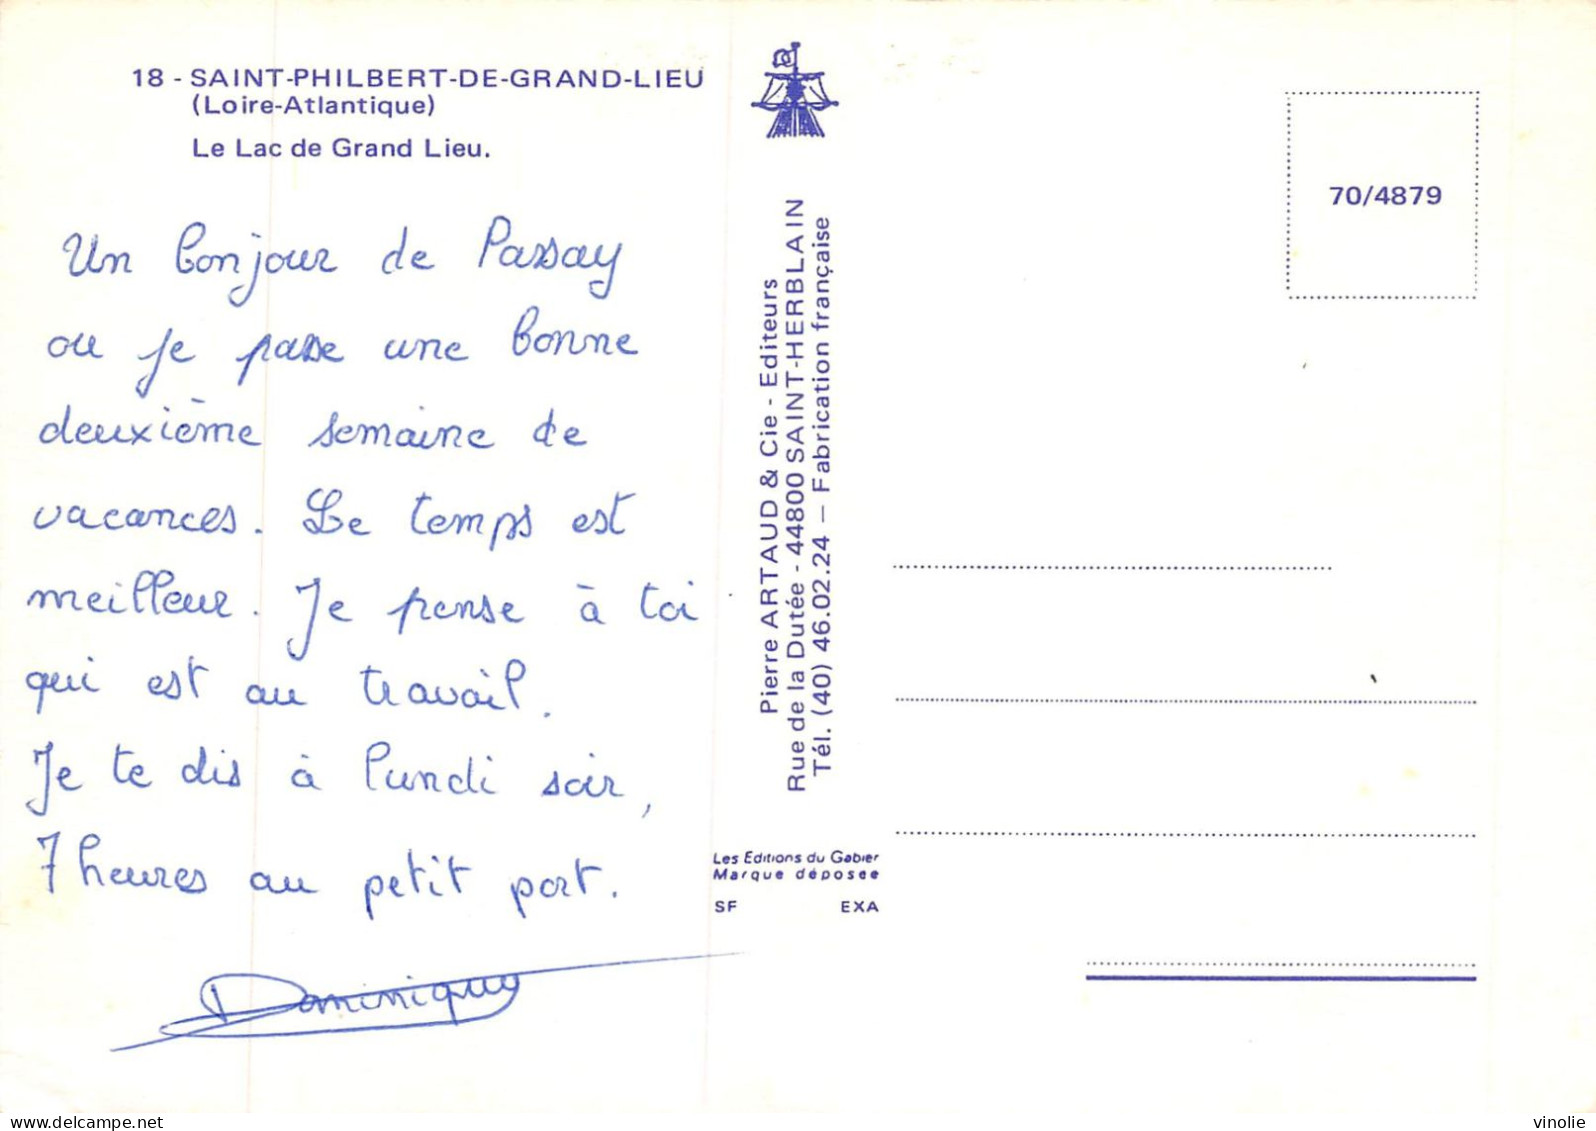 18 - SAINT-PHILBERT-DE-GRAND-LIEU
(Loire-Atlantique)
Le Lac de Grand Lieu.
Un bonjour de Passay
ou je passe une bonne
deuxième semaine de
vacances. Le temps est
meilleur. Je pense à toi
qui est au travail.
Je te dis à lundi soir,
7 heures au petit port.
Dominique
Pierre ARTAUD & Cie - Editeurs
Rue de la Dutée - 44800 SAINT-HERBLAIN
Tél. (40) 46.02.24 — Fabrication française
Les Editions du Gabier
Marque déposée
SF EXA
70/4879
delcampe.net
vinolie